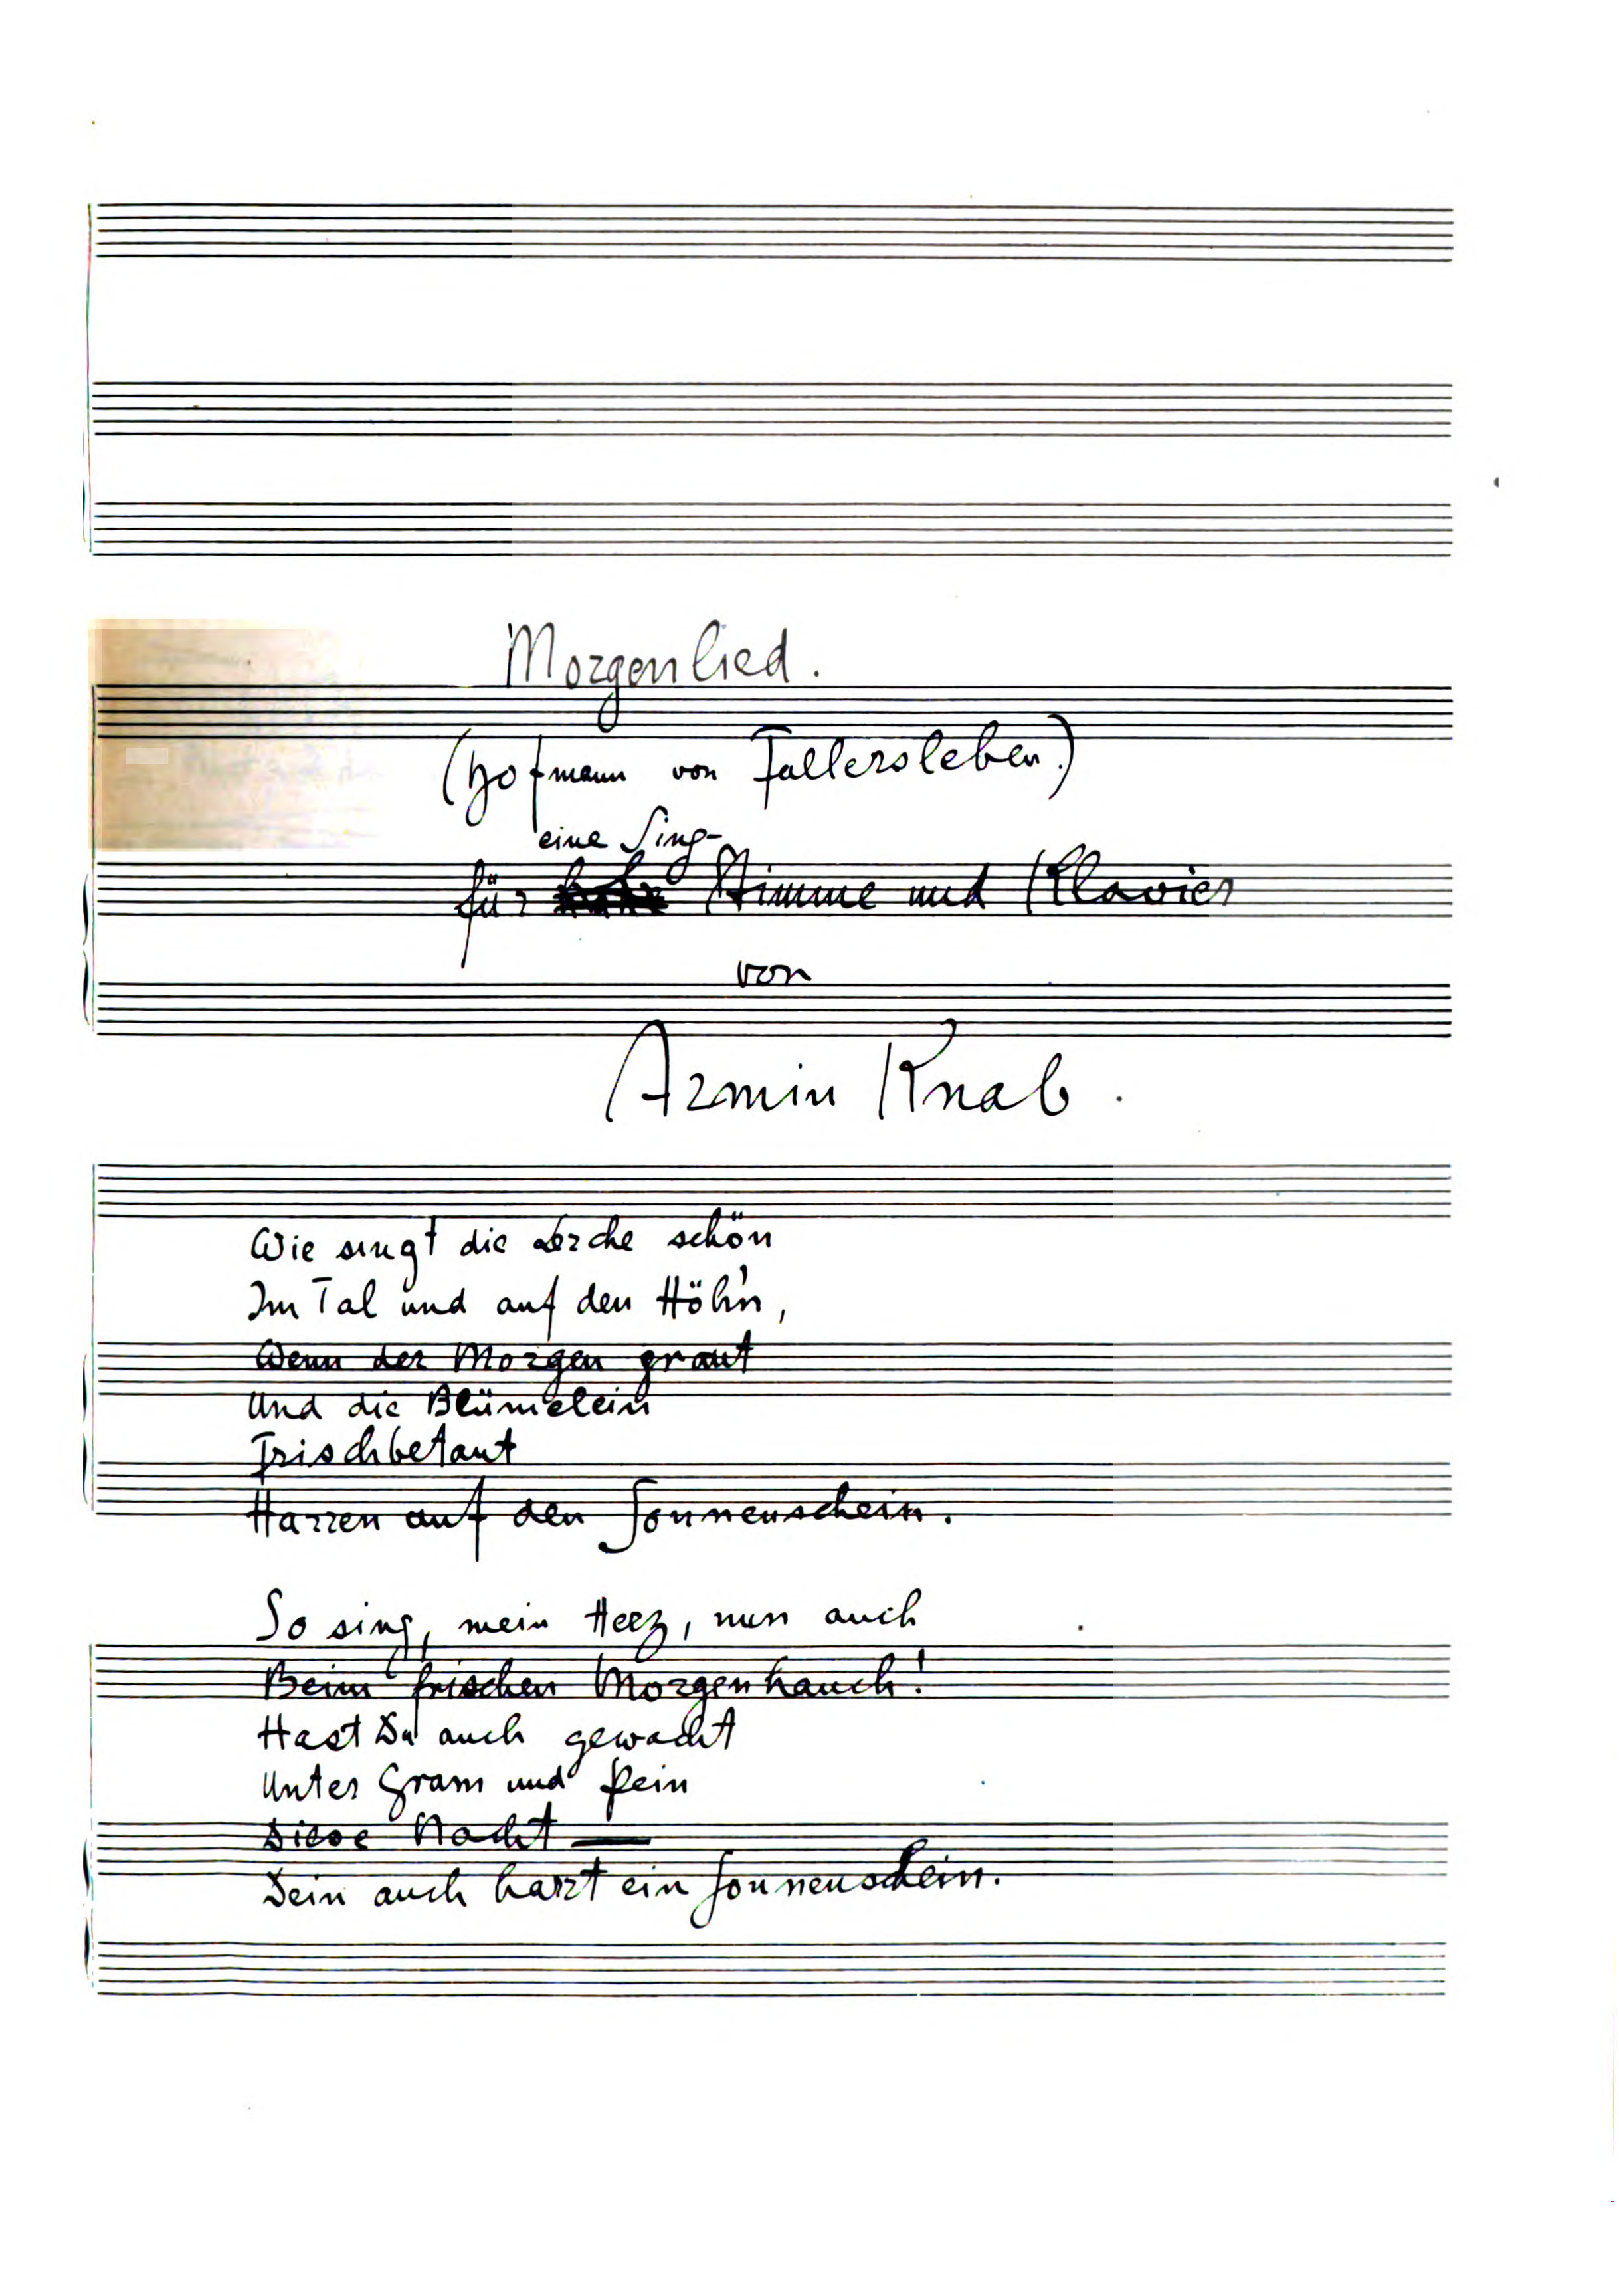 Morgenlied.
(Hofmann von Fallersleben.)
eine Sing-
für Stimme und Klavier
von
Armin Knab.
Wie singt die Lerche schön
Im Tal und auf den Höh'n,
Wenn der Morgen graut
Und die Blümelein
Frischbetaut
Harren auf den Sonnenschein.
So sing, mein Herz, nun auch
Beim frischen Morgenhauch!
Hast Du auch gewacht
Unter Gram und Pein
Diese Nacht —
Dein auch harrt ein Sonnenschein.